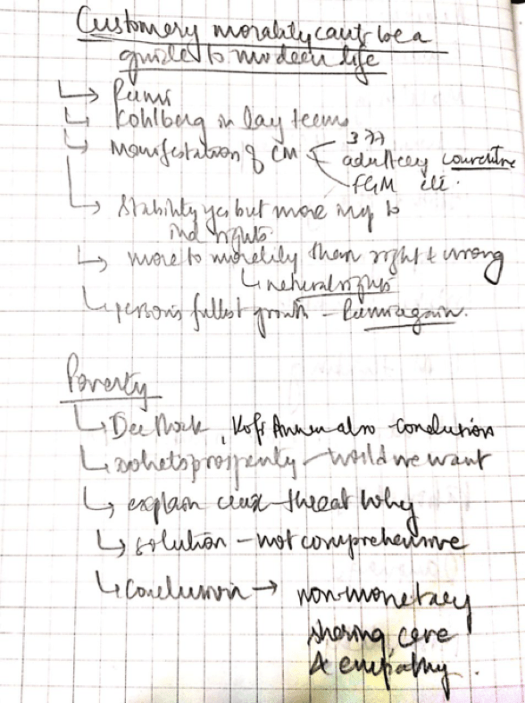 Customery morality can't be a
guide to modern life
Rumi
Kohlberg in lay terms
manifestation of CM
377
adultery
FGM etc.
Stability yes but more imp to
ind rights
more to morality than right & wrong
natural rights
person's fullest growth - Rumi again.
Poverty
Dee Hock, Kofi Annan also - conclusion
what is prosperity - world we want
explain crux - threat why
solution - not comprehensive
Conclusion → non-monetary
sharing, care
& empathy.